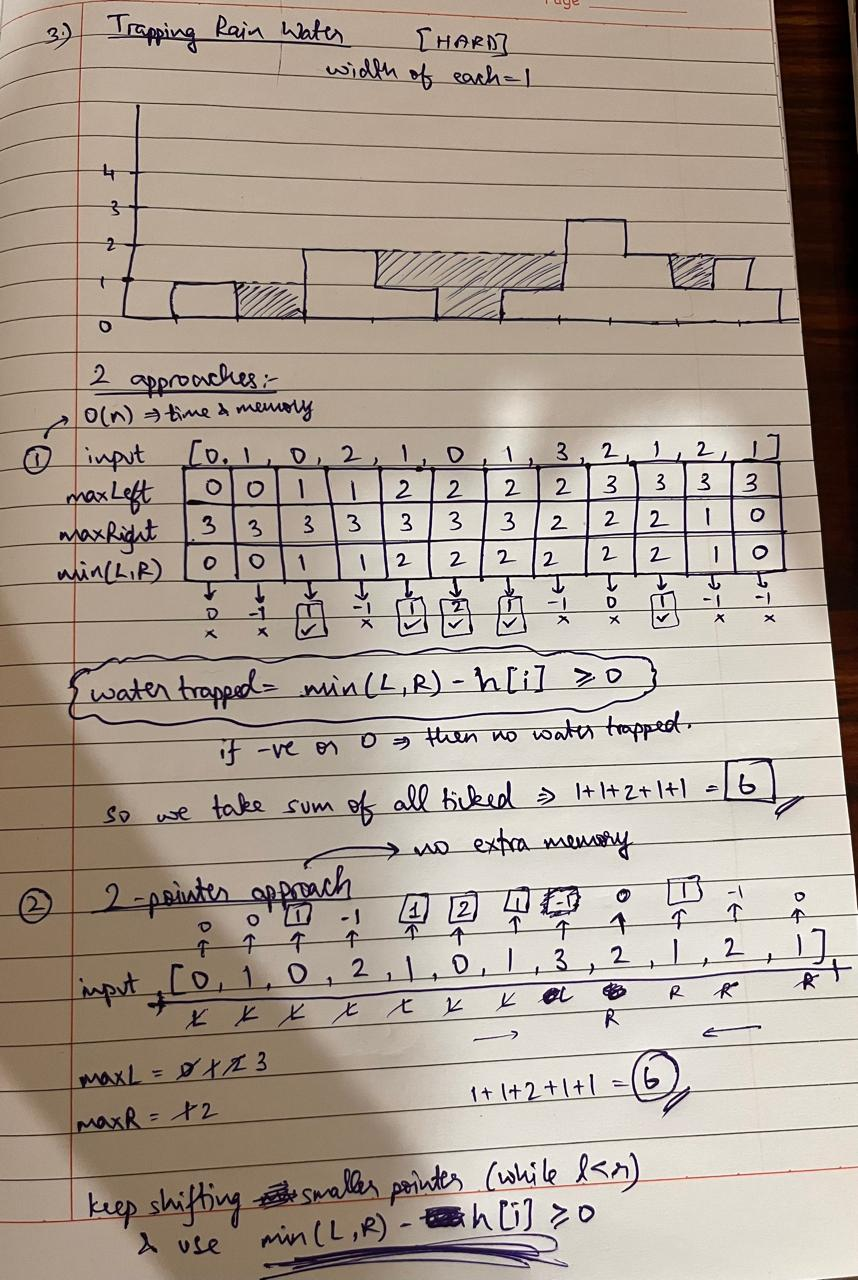 Page
3.) Trapping Rain Water [HARD]
width of each = 1
4
3
2
1
0
2 approaches:-
O(n) ⇒ time & memory
① input [0, 1, 0, 2, 1, 0, 1, 3, 2, 1, 2, 1]
maxLeft 0 0 1 1 2 2 2 2 3 3 3 3
maxRight 3 3 3 3 3 3 3 2 2 2 1 0
min(L,R) 0 0 1 1 2 2 2 2 2 2 1 0
↓ ↓ ↓ ↓ ↓ ↓ ↓ ↓ ↓ ↓ ↓ ↓
0 -1 1 -1 1 2 1 -1 0 1 -1 -1
x x ✓ x ✓ ✓ ✓ x x ✓ x x
water trapped = min(L,R) - h[i] ≥ 0
if -ve or 0 ⇒ then no water trapped.
so we take sum of all ticked ⇒ 1+1+2+1+1 = 6
→ no extra memory
② 2-pointer approach
0 0 1 -1 1 2 1 -1 0 1 -1 0
↑ ↑ ↑ ↑ ↑ ↑ ↑ ↑ ↑ ↑ ↑ ↑
input [0, 1, 0, 2, 1, 0, 1, 3, 2, 1, 2, 1]
R R R
R
→ ←
maxL = 0 1 2 3
maxR = 1 2
1+1+2+1+1 = 6
keep shifting smaller pointer (while l<r)
& use min(L,R) - h[i] ≥ 0